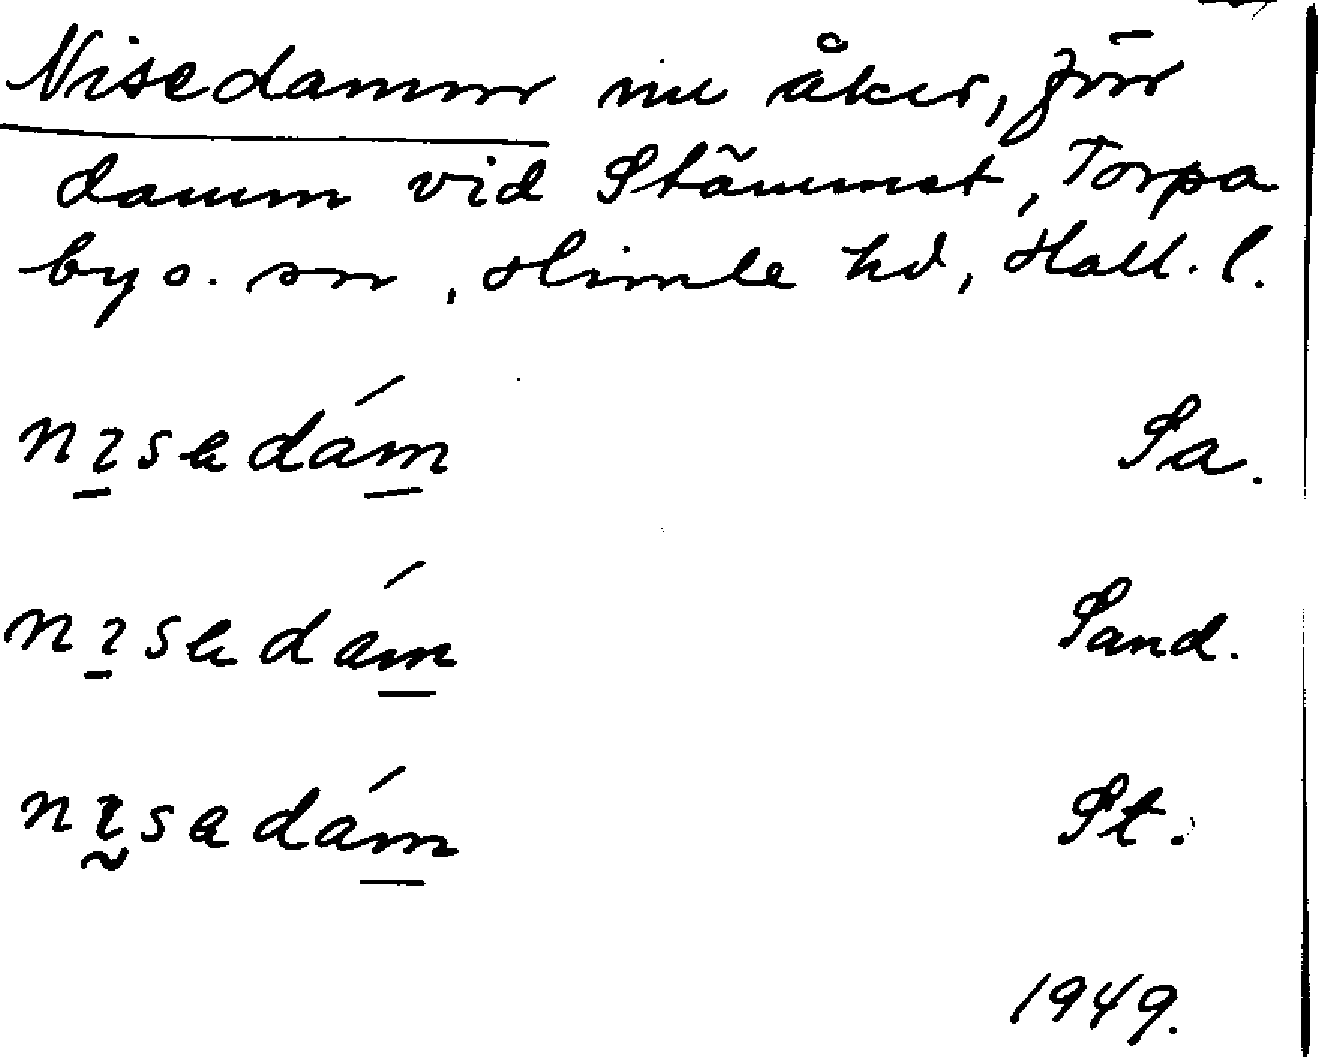 Nisedamm nu åker, förr
damm vid Stämmet, Torpa
by o. sn, Himle hd, Hall. l.
nɩsadám Sa.
nɩsadám Sand.
nɩsadám St.
1949.